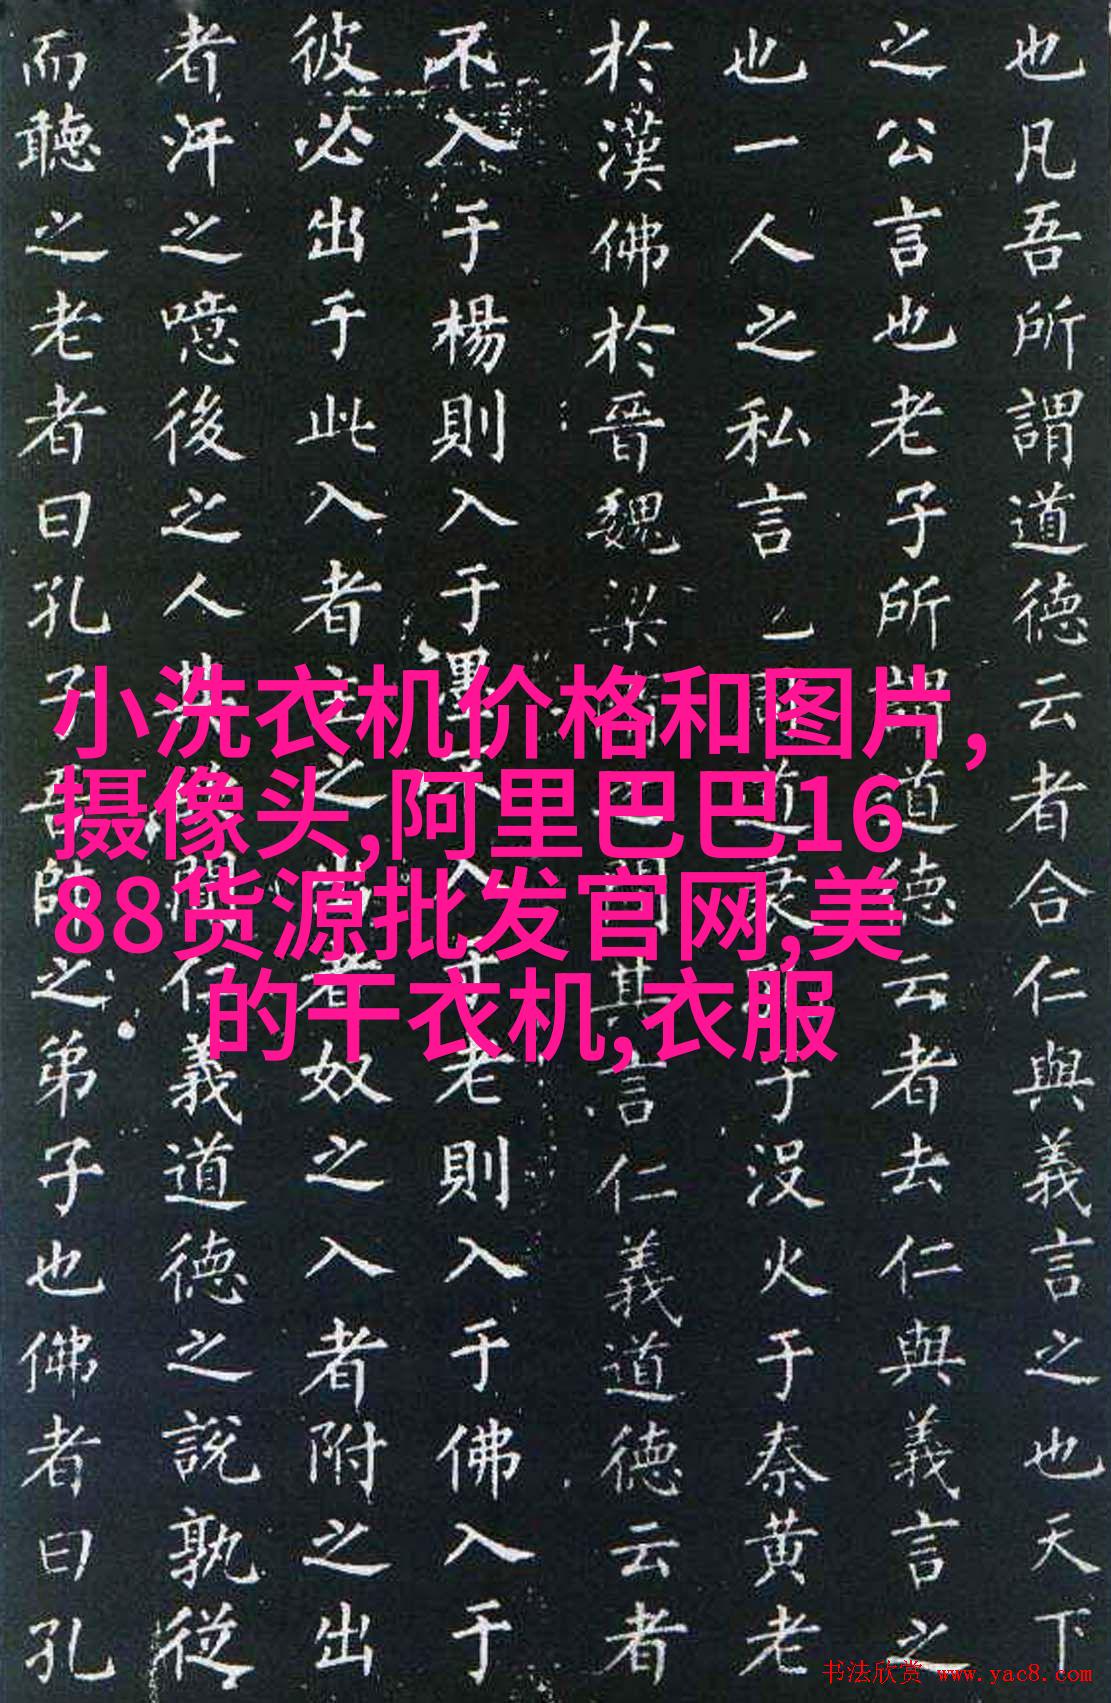 也凡吾所謂道德云者合仁與義言之也天下
之公言也老子所謂道德云者去仁與義言之
也一人之私言道衰孔子没火于秦黄老
於漢佛於晉魏梁隋之間其言仁義道德云者
不入于楊則入于墨不入于老則入于佛入于
彼必出于此入者主之出者奴之入者附之出
者汙之噫後之人其欲聞仁義道德之說孰從
而聽之老者曰孔子吾師之弟子也佛者曰孔
小洗衣机价格和图片,
摄像头,阿里巴巴16
88货源批发官网,美
的干衣机,衣服
书法欣赏 www.yac8.com